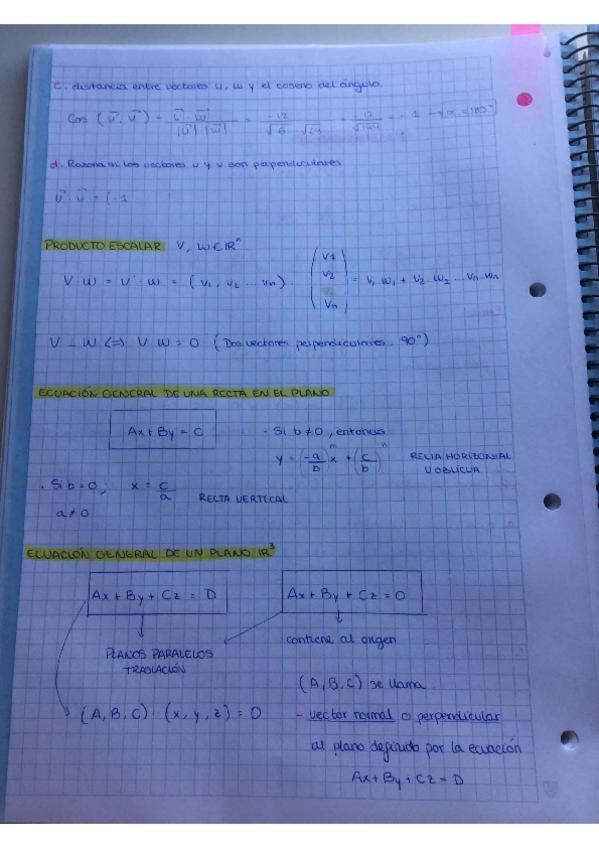 c. distancia entre vectores u, w y el coseno del ángulo.
Cos (u⃗, v⃗) = u⃗ · w⃗ / |u⃗| |w⃗| = -12 / √6 · √24 = -12 / √144 = -1 → α = 180°
d. Razona si los vectores u y v son perpendiculares
u⃗ · v⃗ = (-1
PRODUCTO ESCALAR V, W ∈ IRⁿ
V · W = Vᵗ · W = (V₁, V₂ ... Vn) · (V1 V2 ... Vn) = V₁ W₁ + V₂ · W₂ ... Vn · Wn
V _ W <=> V · W = 0 (Dos vectores perpendiculares. 90°)
ECUACIÓN GENERAL DE UNA RECTA EN EL PLANO
Ax + By = C
· Si b ≠ 0, entonces
y = (-a/b)ᵐ x + (c/b)ⁿ RECTA HORIZONTAL
U OBLICUA
· Si b = 0; x = c/a RECTA VERTICAL
a ≠ 0
ECUACIÓN GENERAL DE UN PLANO IR³
Ax + By + Cz = D
Ax + By + Cz = 0
PLANOS PARALELOS
TRASLACIÓN
contiene al origen
(A, B, C) · (x, y, z) = 0
(A, B, C) se llama
- vector normal o perpendicular
al plano definido por la ecuación
Ax + By + Cz = D